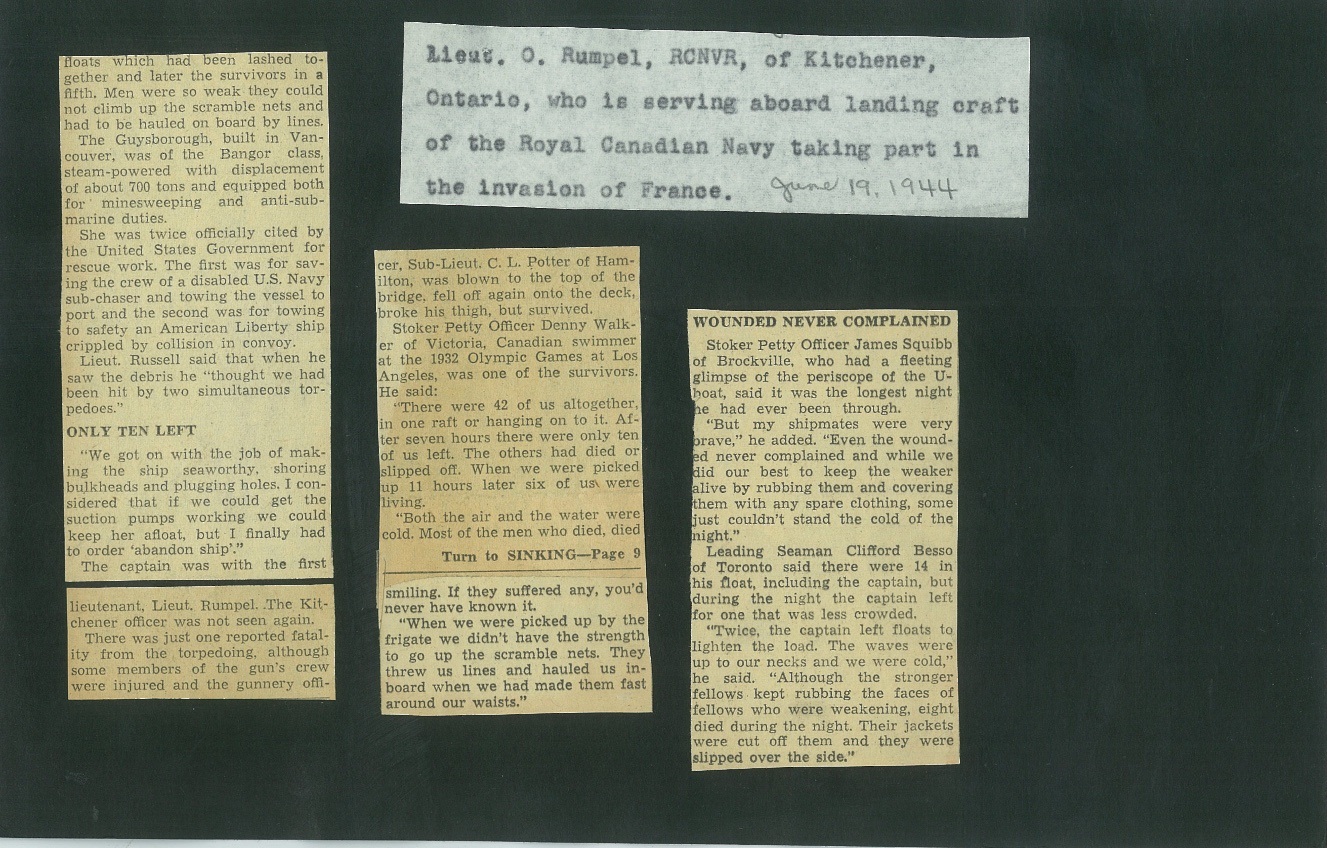 floats which had been lashed to-
gether and later the survivors in a
fifth. Men were so weak they could
not climb up the scramble nets and
had to be hauled on board by lines.
The Guysborough, built in Van-
couver, was of the Bangor class,
steam-powered with displacement
of about 700 tons and equipped both
for minesweeping and anti-sub-
marine duties.
She was twice officially cited by
the United States Government for
rescue work. The first was for sav-
ing the crew of a disabled U.S. Navy
sub-chaser and towing the vessel to
port and the second was for towing
to safety an American Liberty ship
crippled by collision in convoy.
Lieut. Russell said that when he
saw the debris he “thought we had
been hit by two simultaneous tor-
pedoes.”
ONLY TEN LEFT
“We got on with the job of mak-
ing the ship seaworthy, shoring
bulkheads and plugging holes. I con-
sidered that if we could get the
suction pumps working we could
keep her afloat, but I finally had
to order ‘abandon ship’.”
The captain was with the first
lieutenant, Lieut. Rumpel. .The Kit-
chener officer was not seen again.
There was just one reported fatal-
ity from the torpedoing, although
some members of the gun's crew
were injured and the gunnery offi-
Lieut. O. Rumpel, RCNVR, of Kitchener,
Ontario, who is serving aboard landing craft
of the Royal Canadian Navy taking part in
the invasion of France. June 19, 1944
cer, Sub-Lieut. C. L. Potter of Ham-
ilton, was blown to the top of the
bridge, fell off again onto the deck,
broke his thigh, but survived.
Stoker Petty Officer Denny Walk-
er of Victoria, Canadian swimmer
at the 1932 Olympic Games at Los
Angeles, was one of the survivors.
He said:
“There were 42 of us altogether,
in one raft or hanging on to it. Af-
ter seven hours there were only ten
of us left. The others had died or
slipped off. When we were picked
up 11 hours later six of us were
living.
“Both the air and the water were
cold. Most of the men who died, died
Turn to SINKING—Page 9
smiling. If they suffered any, you'd
never have known it.
“When we were picked up by the
frigate we didn't have the strength
to go up the scramble nets. They
threw us lines and hauled us in-
board when we had made them fast
around our waists.”
WOUNDED NEVER COMPLAINED
Stoker Petty Officer James Squibb
of Brockville, who had a fleeting
glimpse of the periscope of the U-
boat, said it was the longest night
he had ever been through.
“But my shipmates were very
brave,” he added. “Even the wound-
ed never complained and while we
did our best to keep the weaker
alive by rubbing them and covering
them with any spare clothing, some
just couldn't stand the cold of the
night.”
Leading Seaman Clifford Besso
of Toronto said there were 14 in
his float, including the captain, but
during the night the captain left
for one that was less crowded.
“Twice, the captain left floats to
lighten the load. The waves were
up to our necks and we were cold,”
he said. “Although the stronger
fellows kept rubbing the faces of
fellows who were weakening, eight
died during the night. Their jackets
were cut off them and they were
slipped over the side.”